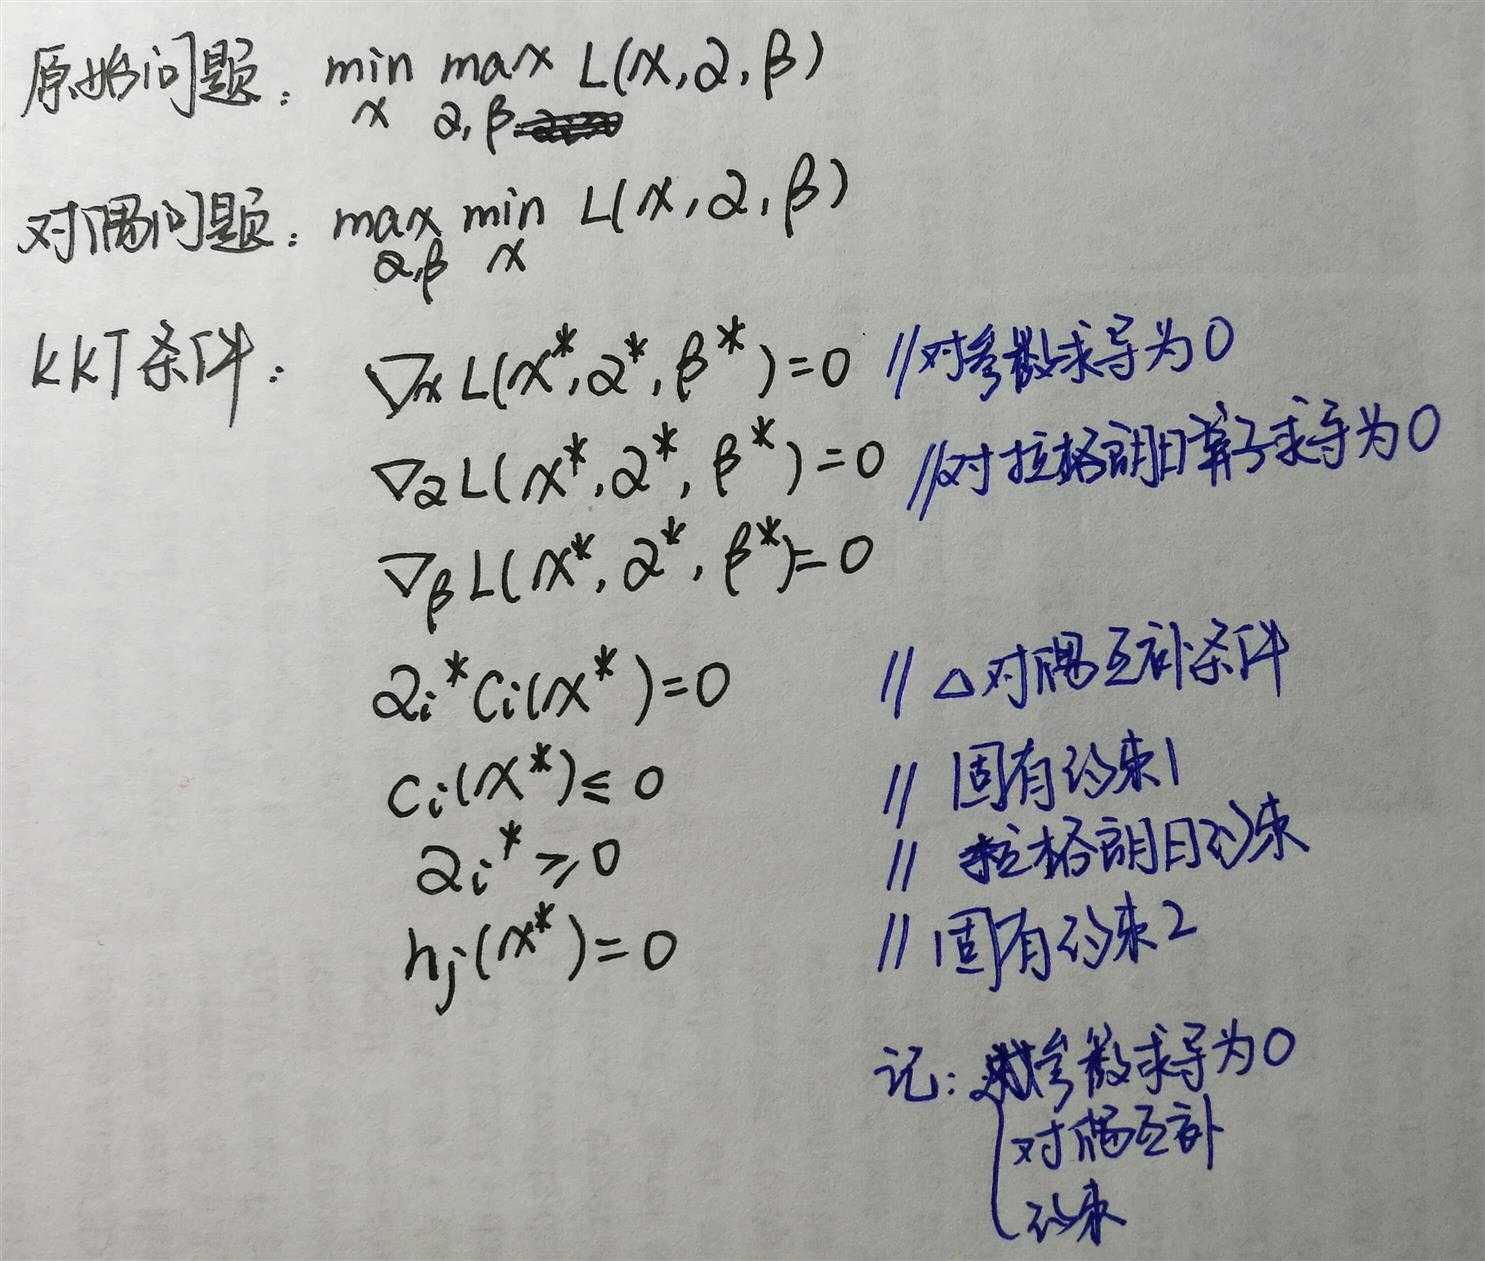 原始问题: min max L(x, α, β)
x α, β
对偶问题: max min L(x, α, β)
α,β x
KKT条件: ∇x L(x*, α*, β*)=0 //对参数求导为0
∇α L(x*, α*, β*)=0 //对拉格朗日算子求导为0
∇β L(x*, α*, β*)=0
αi* Ci(x*)=0 // △对偶互补条件
Ci(x*)≤0 // 固有约束1
αi*≥0 // 拉格朗日约束
hj(x*)=0 // 固有约束2
记: 对参数求导为0
对偶互补
约束